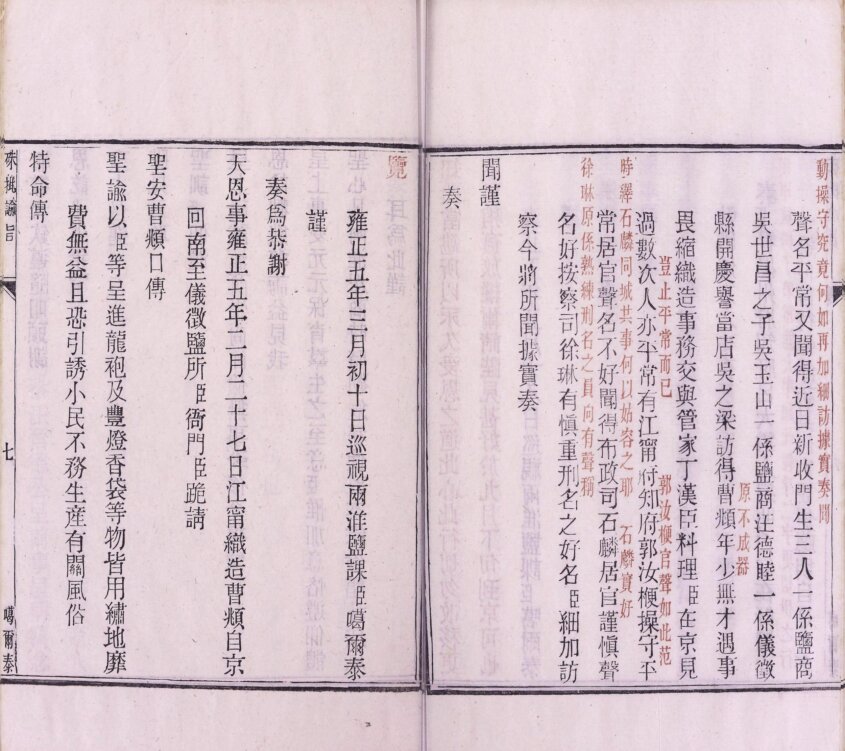 動操守究竟何如再加細訪據實奏聞
聲名平常又聞得近日新收門生三人一係鹽商
吳世昌之子吳玉山一係鹽商汪德睦一係儀徵
縣開慶譽當店吳之梁訪得曹頫年少無才遇事
原不成器
畏縮織造事務交與管家丁漢臣料理臣在京見
豈止平常而已
郭汝楩官聲如此范
過數次人亦平常有江甯府知府郭汝楩操守平
時繹石麟同城共事何以姑容之耶
石麟實好
常居官聲名不好聞得布政司石麟居官謹愼聲
徐琳原係熟練刑名之員向有聲稱
名好按察司徐琳有愼重刑名之好名臣細加訪
察今將所聞據實奏
聞謹
奏
覽
雍正五年三月初十日巡視兩淮鹽課臣噶爾泰
謹
奏爲恭謝
天恩事雍正五年二月二十七日江甯織造曹頫自京
回南至儀徵鹽所臣衙門臣跪請
聖安曹頫口傳
聖諭以臣等呈進龍袍及豐燈香袋等物皆用繡地靡
費無益且恐引誘小民不務生産有關風俗
特命傳
硃批諭旨
七
噶爾泰